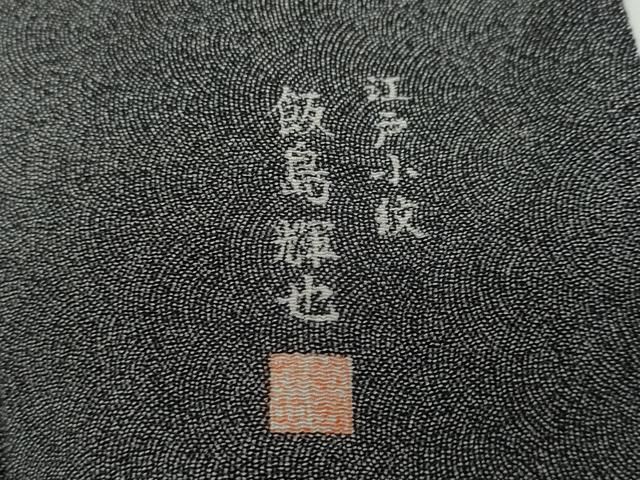 江戸小紋
飯島輝也